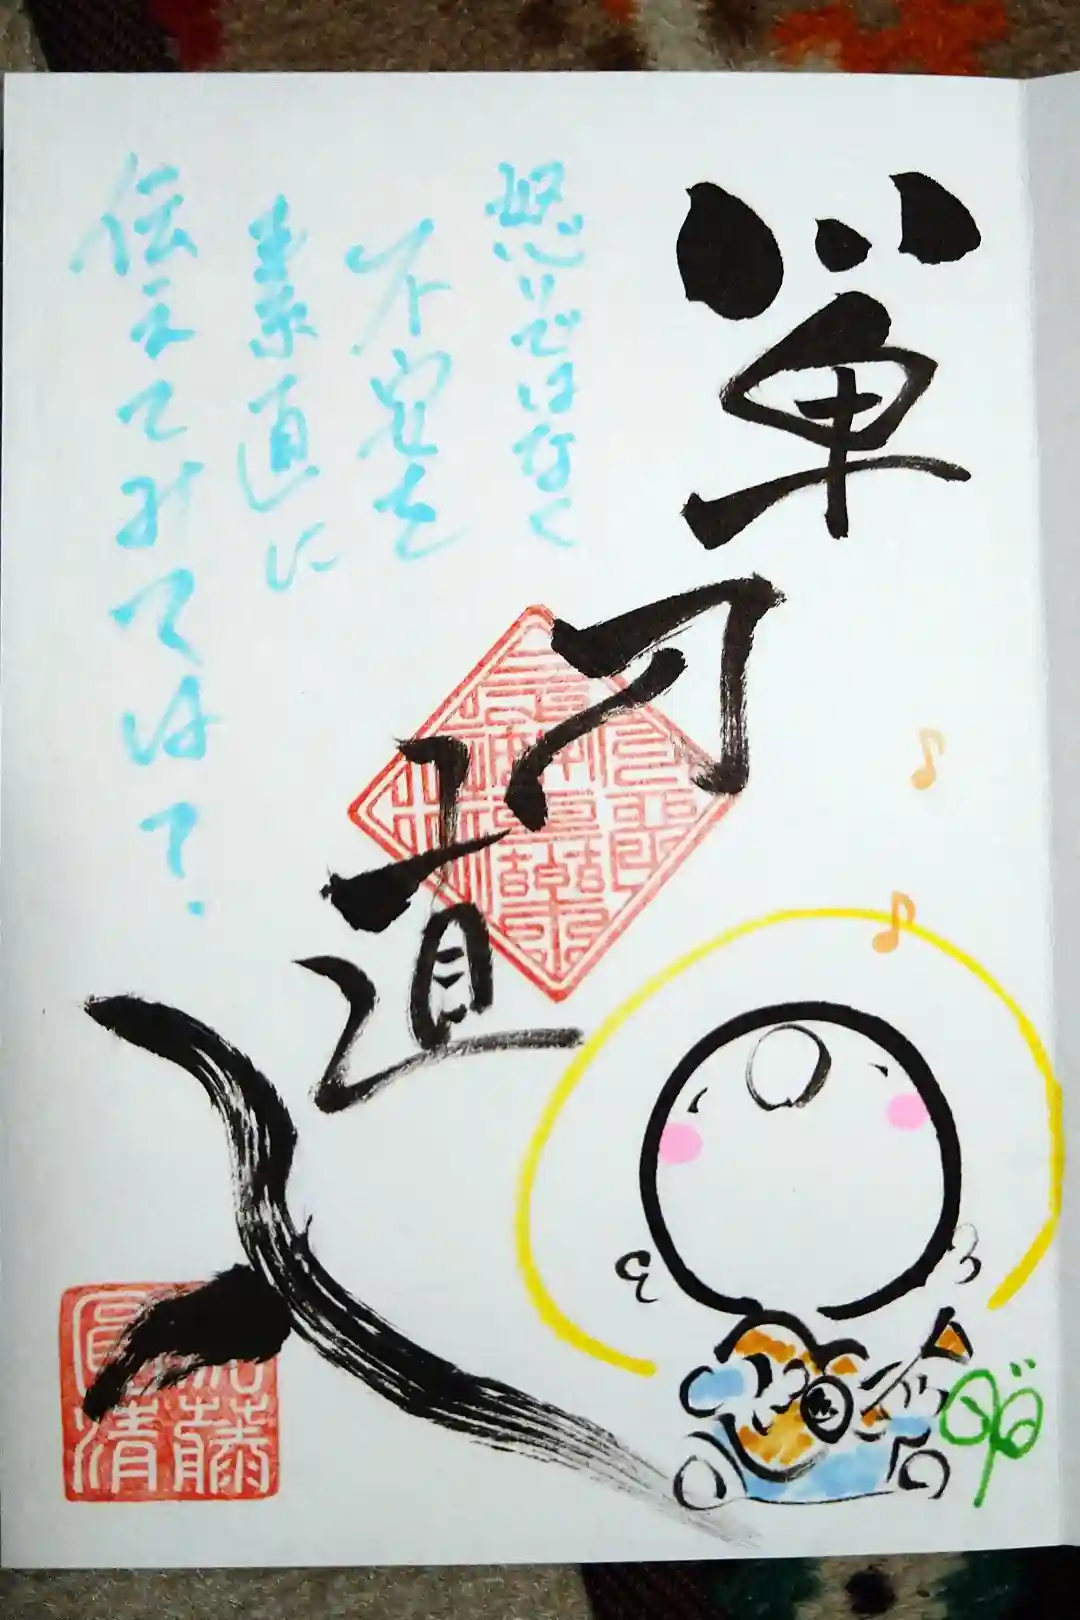 単刀直入
怒りではなく
不安を
素直に
伝えてみては？
加藤
圓清